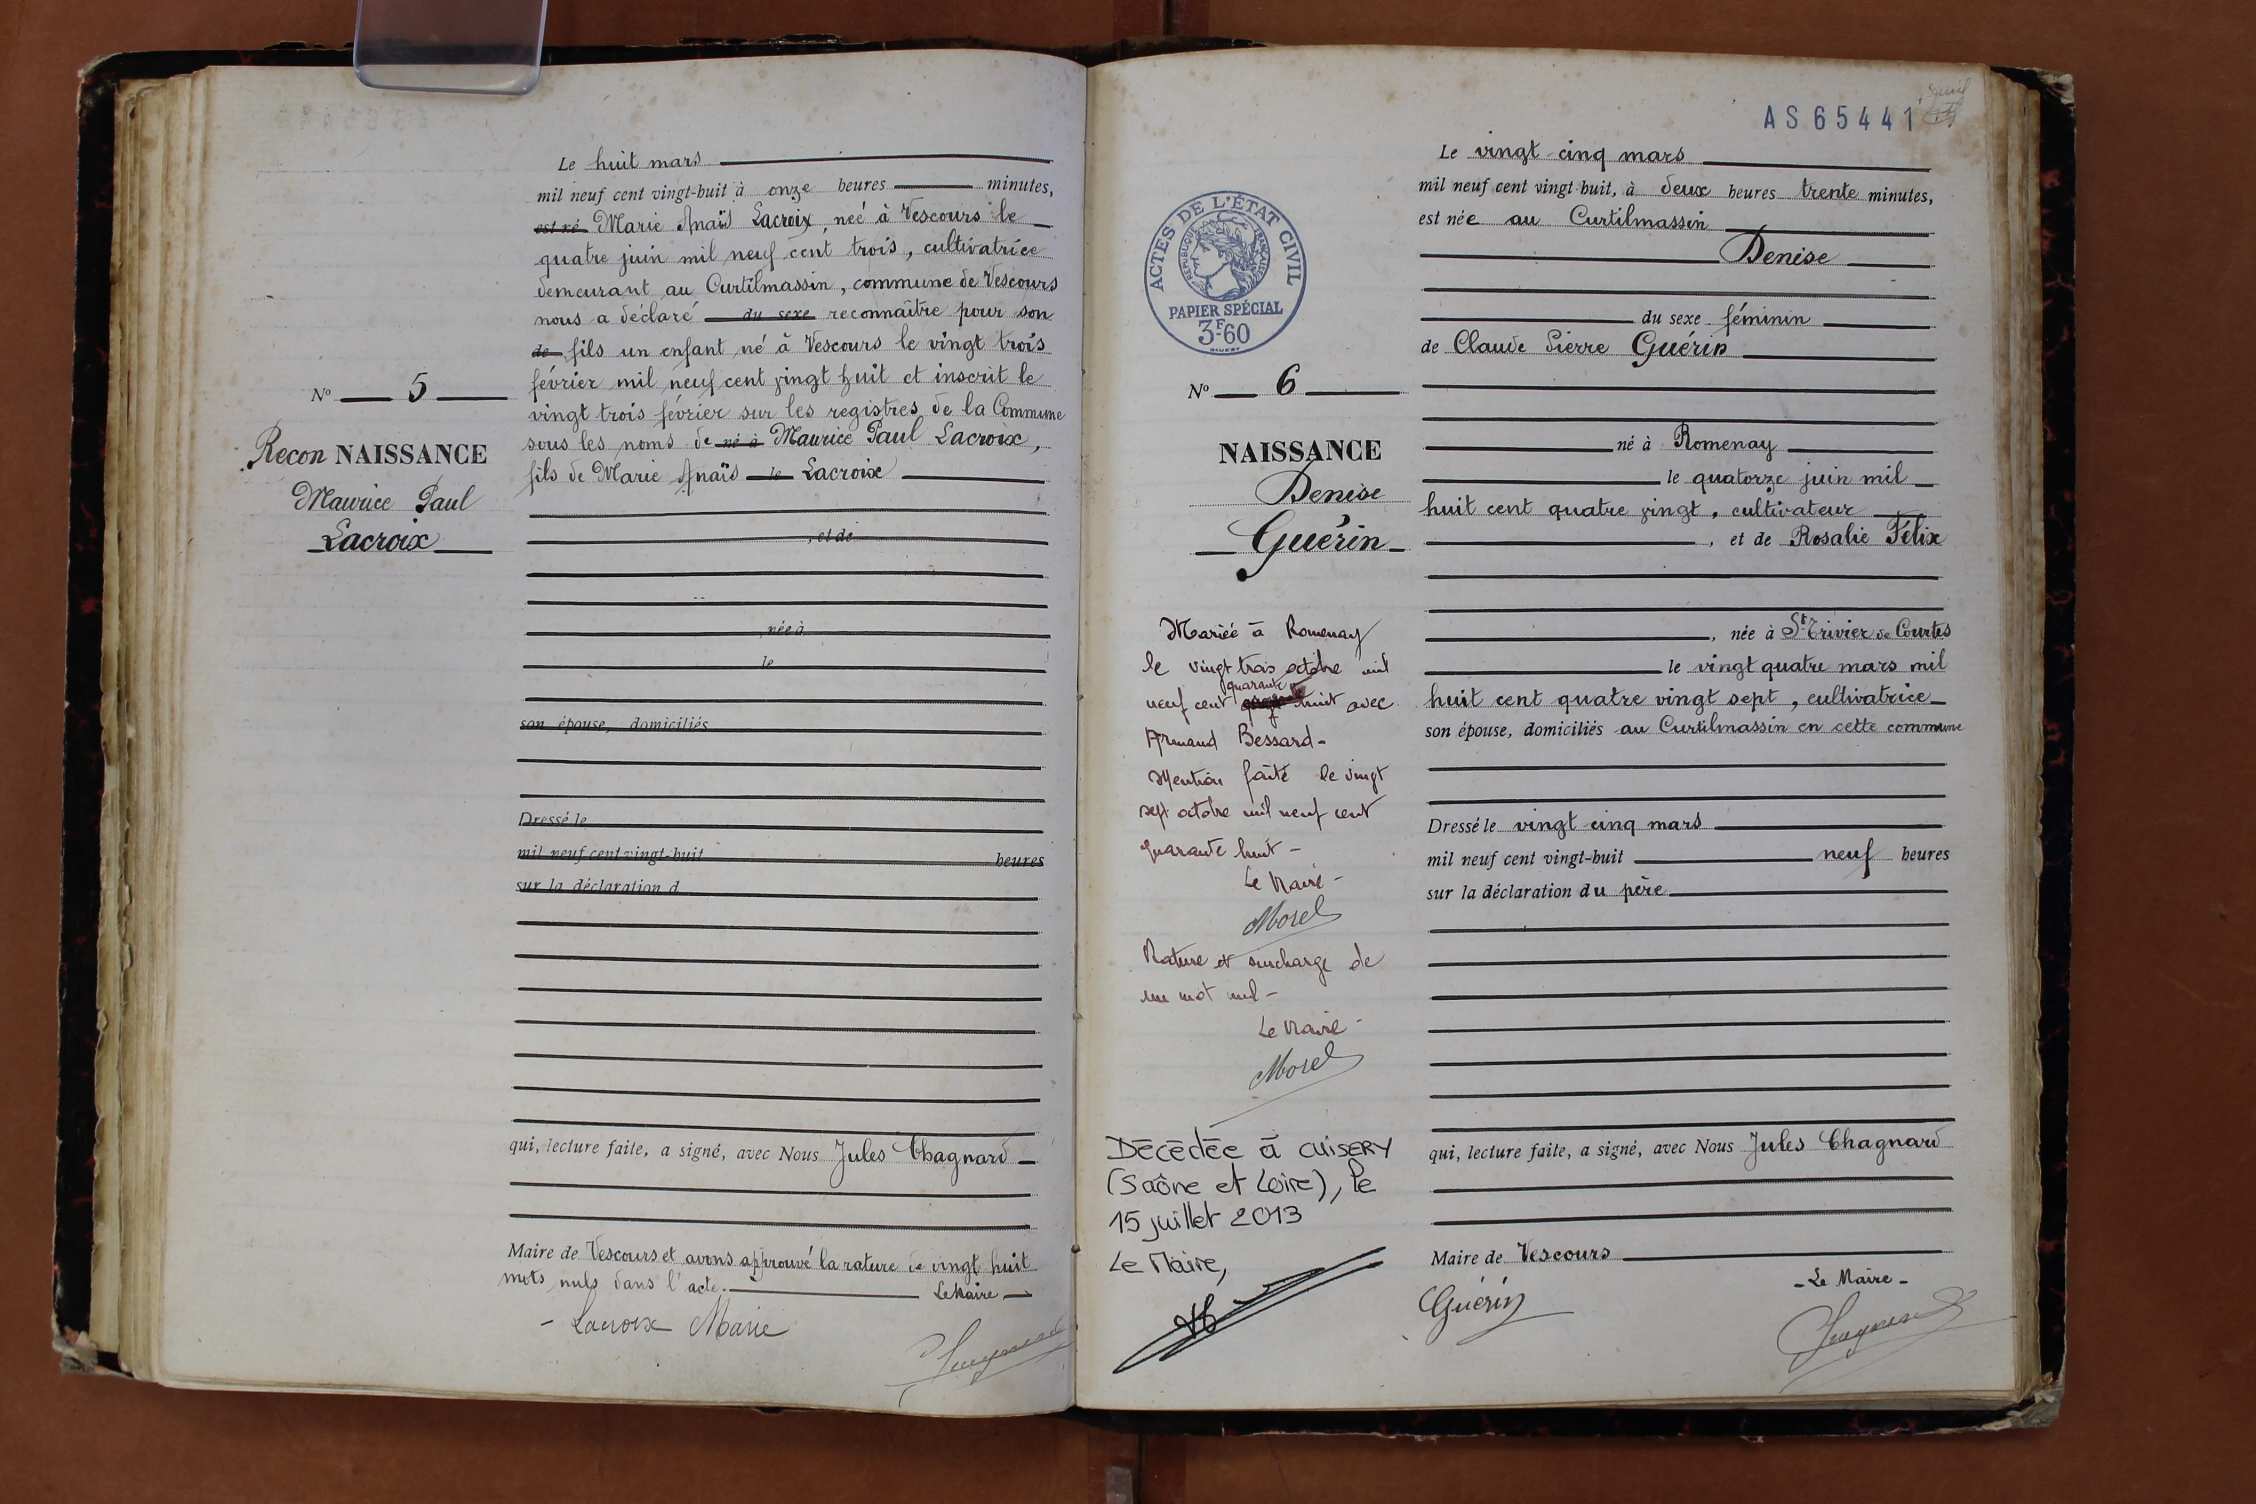 Le huit mars
mil neuf cent vingt-huit à onze heures minutes,
est né Marie Anaïs Lacroix, née à Vescours le
quatre juin mil neuf cent trois, cultivatrice
demeurant au Curtilmassin, commune de Vescours
nous a déclaré du sexe reconnaître pour son
de fils un enfant né à Vescours le vingt trois
février mil neuf cent vingt huit et inscrit le
vingt trois février sur les registres de la Commune
sous les noms de né à Maurice Paul Lacroix,
fils de Marie Anaïs le Lacroix
, et de
née à
le
son épouse, domiciliés
Dressé le
mil neuf cent vingt-huit heures
sur la déclaration d
qui, lecture faite, a signé, avec Nous Jules Chagnard
Maire de Vescours et avons approuvé la rature de vingt huit
mots nuls dans l'acte. Le Maire
Lacroix Marie
N° 5
Recon NAISSANCE
Maurice Paul
Lacroix
AS65441
ACTES DE L'ÉTAT CIVIL
RÉPUBLIQUE FRANÇAISE
PAPIER SPÉCIAL
3F60
N° 6
NAISSANCE
Denise
Guérin
Mariée à Romenay
le vingt trois octobre mil
quarante
neuf cent huit avec
Armand Bessard-
Mention faite le vingt
sept octobre mil neuf cent
quarante huit -
Le Maire -
Morel
Rature et surcharge de
un mot nul -
Le Maire -
Morel
Décédée à CUISERY
(Saône et Loire), le
15 juillet 2013
Le Maire,
Le vingt cinq mars
mil neuf cent vingt-huit, à deux heures trente minutes,
est née au Curtilmassin
Denise
du sexe féminin
de Claude Pierre Guérin
né à Romenay
le quatorze juin mil
huit cent quatre vingt, cultivateur
, et de Rosalie Félix
, née à St Trivier de Courtes
le vingt quatre mars mil
huit cent quatre vingt sept, cultivatrice
son épouse, domiciliés au Curtilmassin en cette commune
Dressé le vingt cinq mars
mil neuf cent vingt-huit neuf heures
sur la déclaration du père
qui, lecture faite, a signé, avec Nous Jules Chagnard
Maire de Vescours
- Le Maire -
Guérin